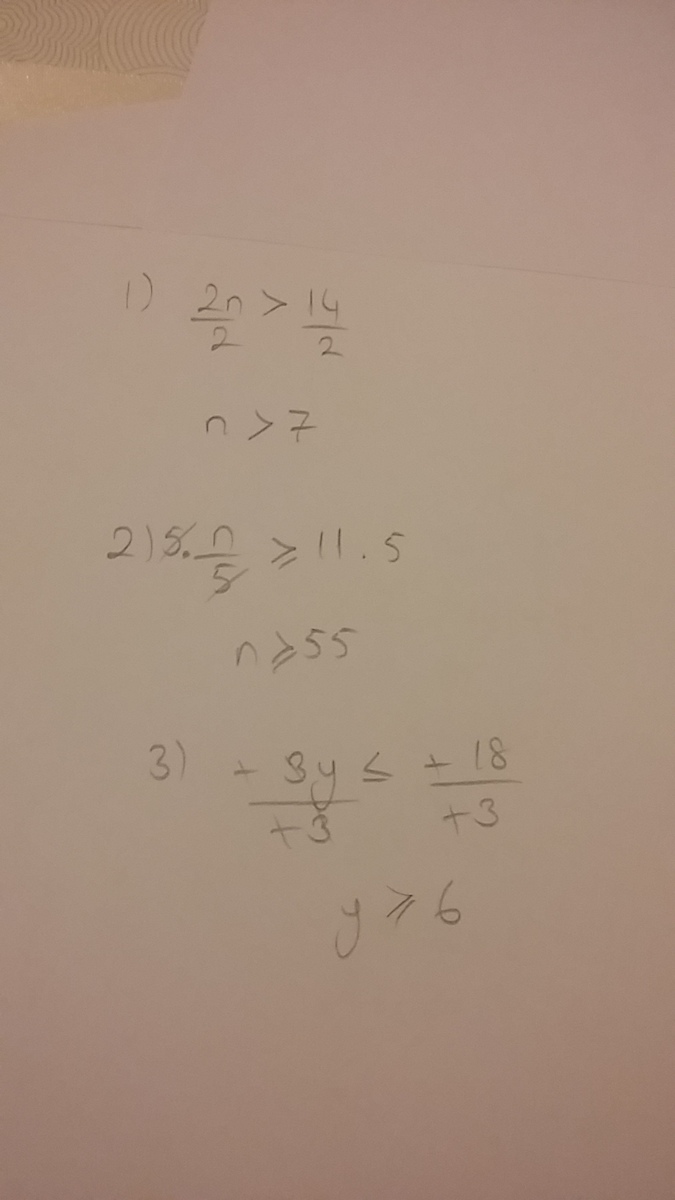 1) 2n/2 > 14/2
n > 7
2) 5. n/5 ⩾ 11 . 5
n ⩾ 55
3) + 3y/+3 ≤ + 18/+3
y ⩾ 6